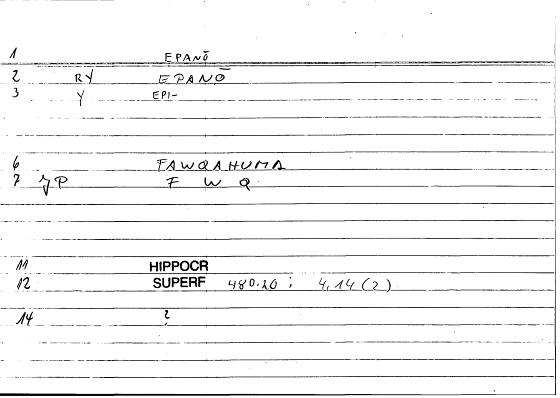 1 EPANŌ
2 RY EPANŌ
3 Y EPI-
6 FAWQAHUMA
7 P F W Q
11 HIPPOCR
12 SUPERF 480.20 ; 4,14 (2)
14 ?